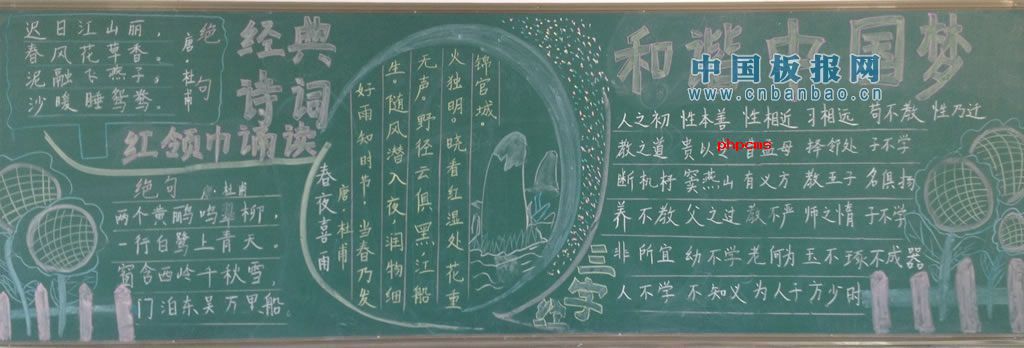 迟日江山丽，
春风花草香。
泥融飞燕子，
沙暖睡鸳鸯。
绝句
唐·杜甫
经典
诗词
红领巾诵读
绝句 唐·杜甫
两个黄鹂鸣翠柳，
一行白鹭上青天。
窗含西岭千秋雪，
门泊东吴万里船。
春夜喜雨
唐·杜甫
好雨知时节，当春乃发
生。随风潜入夜，润物细
无声。野径云俱黑，江船
火独明。晓看红湿处，花重
锦官城。
和谐中国梦
中国板报网
www.cnbanbao.cn
phpcms
三字经
人之初 性本善 性相近 习相远 苟不教 性乃迁
教之道 贵以 昔孟母 择邻处 子不学
断机杼 窦燕山 有义方 教五子 名俱扬
养不教 父之过 教不严 师之情 子不学
非所宜 幼不学 老何为 玉不琢 不成器
人不学 不知义 为人子 方少时